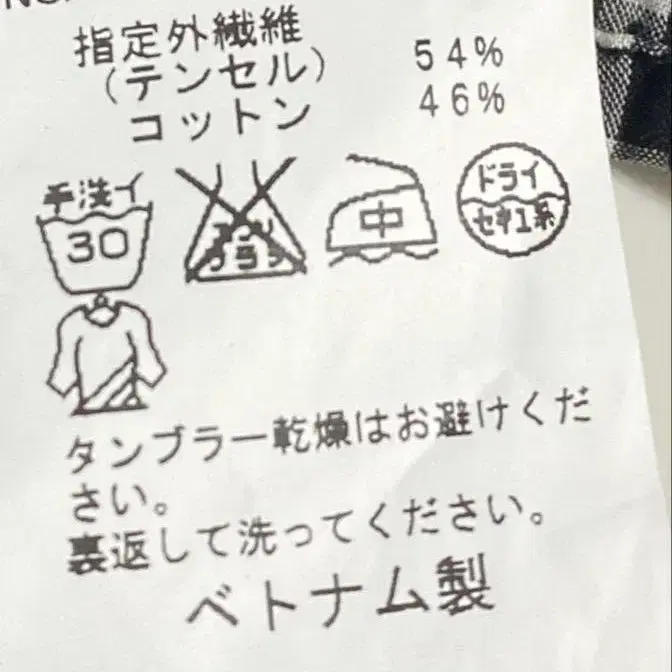 指定外繊維
(テンセル) 54%
コットン 46%
手洗イ
30
中
ドライ
セキユ系
タンブラー乾燥はお避けくだ
さい。
裏返して洗ってください。
ベトナム製